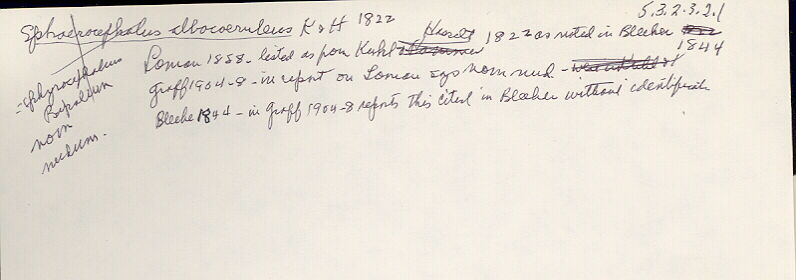 5.3.2.3.2.1
Sphaerocephalus albocoeruleus K & H 1822
Hasselt 1822 as noted in Bleeker
Loman 1888 - listed as from Kuhl 1844
Graff 1904-8 - in report on Loman says nom nud -
Bleeke 1844 - in Graff 1904-8 reports this cited in Bleeker without identificati
- Sphyrocephalus
Bipalium
nom
nudum.